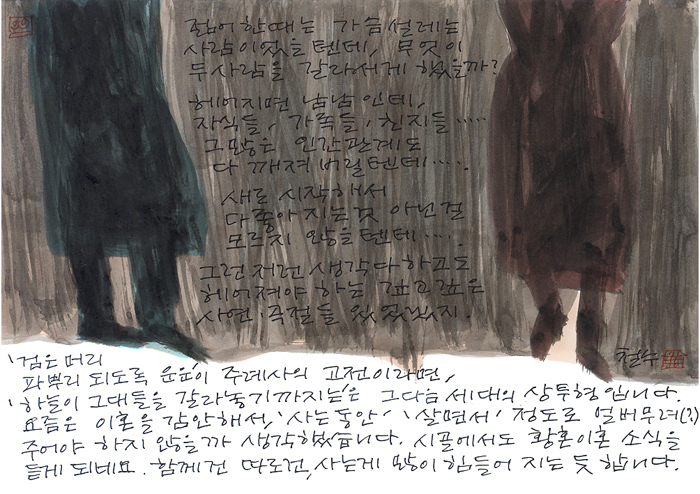 젊어 한때는 가슴 설레는
사람이었을 텐데, 무엇이
두 사람을 갈라서게 했을까?
헤어지면 남남인데,
자식들, 가족들, 친지들.....
그 많은 인간관계도
다 깨져 버릴텐데.....
새로 시작해서
다 좋아지는 것 아닌걸
모르지 않을텐데....
그런 저런 생각 다 하고도
헤어져야 하는 깊고 깊은
사연·곡절들 있겠지.
철수
'검은 머리
파뿌리 되도록 운운'이 주례사의 고전이라면,
'하늘이 그대들을 갈라놓기까지는'은 그 다음 세대의 상투형입니다.
요즘은 이혼을 감안해서, '사는 동안' '살면서' 정도로 얼버무려(?)
주어야 하지 않을까 생각했습니다. 시골에서도 황혼이혼 소식을
듣게 되네요. 함께건 따로건, 사는게 많이 힘들어 지는 듯 합니다.